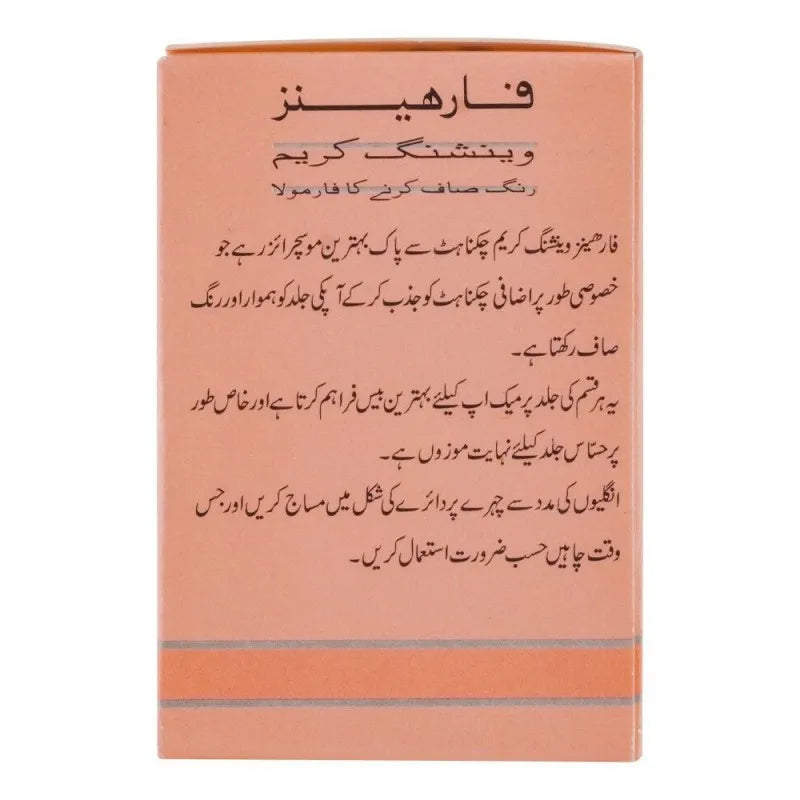 فارهینز
وینشنگ کریم
رنگ صاف کرنے کا فارمولا
فارھینز وینشنگ کریم چکناہٹ سے پاک بہترین موسچرائزر ہے جو
خصوصی طور پر اضافی چکناہٹ کو جذب کر کے آپکی جلد کو ہموار اور رنگ
صاف رکھتا ہے۔
یہ ہر قسم کی جلد پر میک اپ کیلئے بہترین بیس فراہم کرتا ہے اور خاص طور
پر حسّاس جلد کیلئے نہایت موزوں ہے۔
انگلیوں کی مدد سے چہرے پر دائرے کی شکل میں مساج کریں اور جس
وقت چاہیں حسب ضرورت استعمال کریں۔